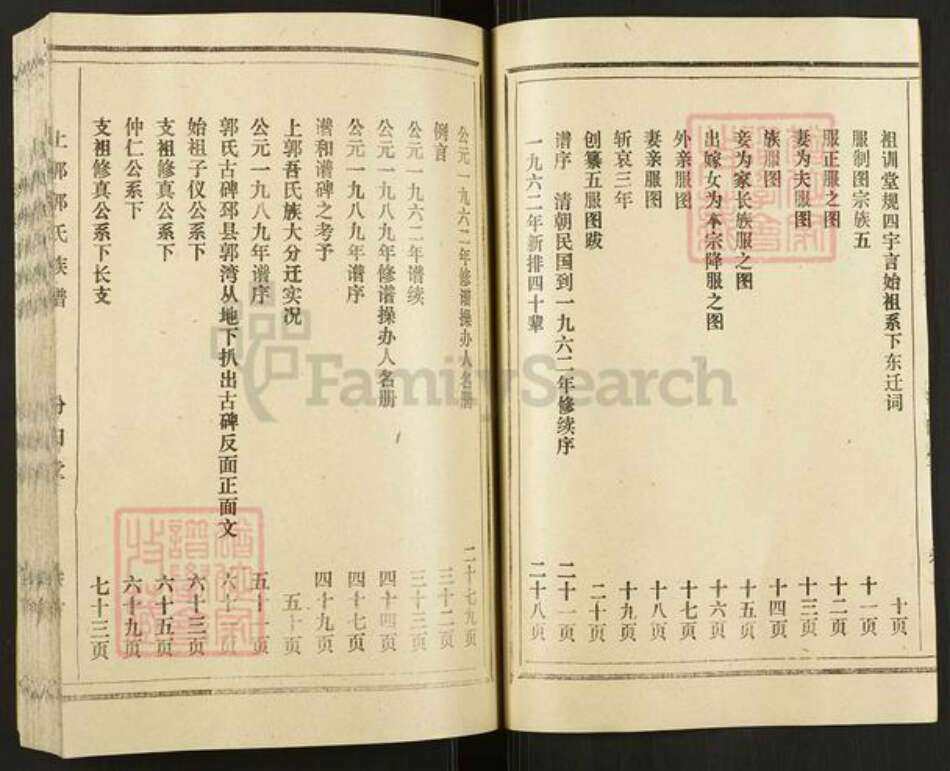 祖训堂规四字言始祖系下东迁词 十页
服制图宗族五 十一页
服正服之图 十二页
妻为夫服图 十三页
族服图 十四页
妾为家长族服之图 十五页
出嫁女为本宗降服之图 十六页
外亲服图 十七页
妻亲服图 十八页
斩哀三年 十九页
创纂五服图跋 二十页
谱序 清朝民国到一九六二年修续序 二十一页
一九六二年新排四十辈 二十八页
公元一九六二年修谱操办人名册 二十七九页
例言 三十二页
公元一九六二年谱续 三十三页
公元一九八九年修谱操办人名册 四十四页
公元一九八九年谱序 四十七页
谱和谱碑之考予 四十九页
上郭吾氏族大分迁实况 五十页
公元一九八九年谱序 五十一页
郭氏古碑郅县郭湾从地下扒出古碑反面正面文 六十页
始祖子仪公系下 六十三页
支祖修真公系下 六十五页
仲仁公系下 六十九页
支祖修真公系下长支 七十三页
上郭郭氏族谱
FamilySearch